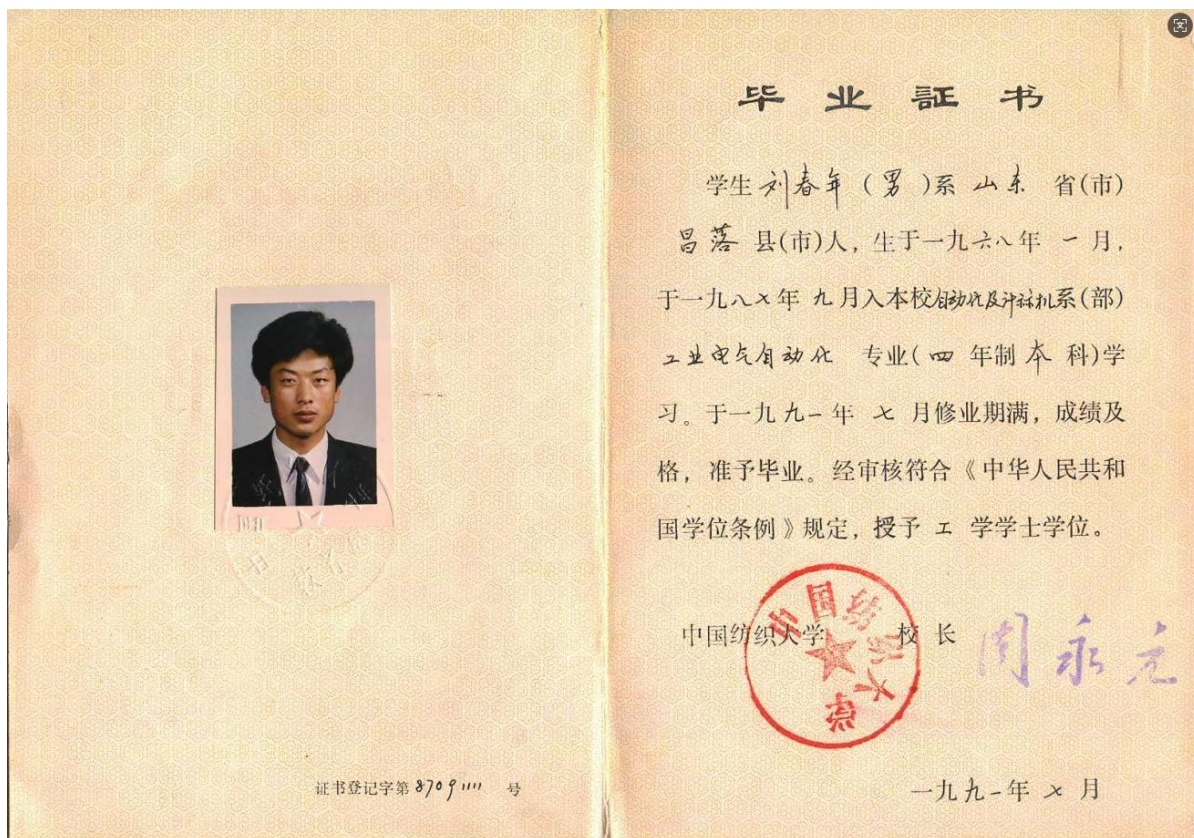 毕业証书
学生 刘春年 (男)系 山东 省(市)
昌落 县(市)人，生于一九六八年 一 月，
于一九八七年 九月入本校自动化及计算机系(部)
工业电气自动化 专业(四 年制 本 科)学
习。于一九九一年 七 月修业期满，成绩及
格，准予毕业。经审核符合《中华人民共和
国学位条例》规定，授予 工 学学士学位。
中国纺织大学 校长 周永元
中国纺织大学
一九九一年 七 月
证书登记字第 87091111 号